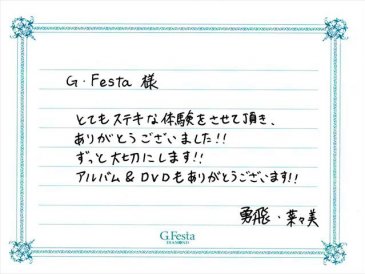 G・Festa 様
とてもステキな体験をさせて頂き、
ありがとうございました!!
ずっと大切にします!!
アルバム & DVDもありがとうございます!!
勇飛・菜々美
G.Festa
DIAMOND